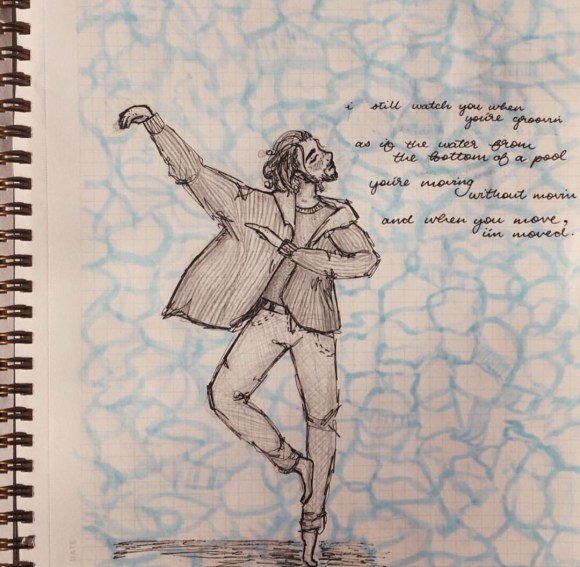 i still watch you when
you're groovin
as if the water from
the bottom of a pool
you're moving
without movin
and when you move,
i'm moved.
DATE